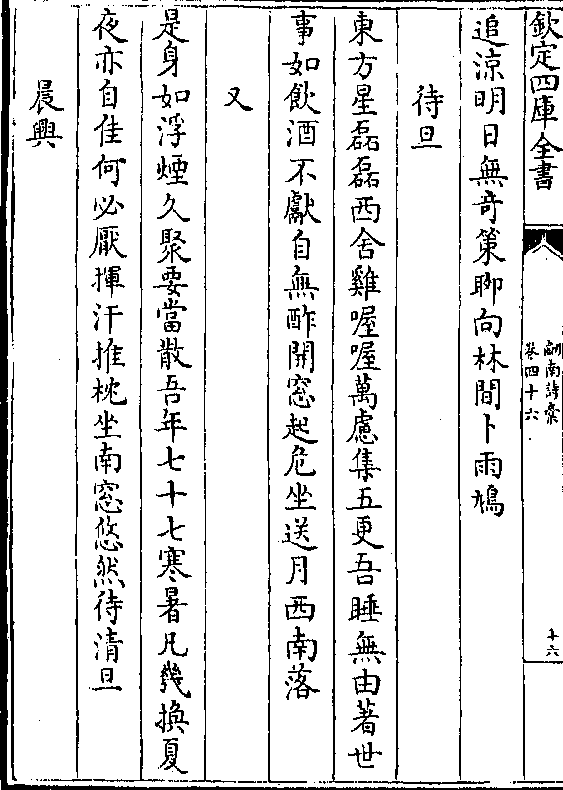 欽定四庫全書
劍南詩稾
卷四十六
十六
追涼明日無竒策聊向林間卜雨鳩
待旦
東方星磊磊西舍雞喔喔萬慮集五更吾睡無由著世
事如飲酒不獻自無酢開窓起危坐送月西南落
又
是身如浮煙久聚要當散吾年七十七寒暑凡幾換夏
夜亦自佳何必厭揮汗推枕坐南窓悠然待清旦
晨興